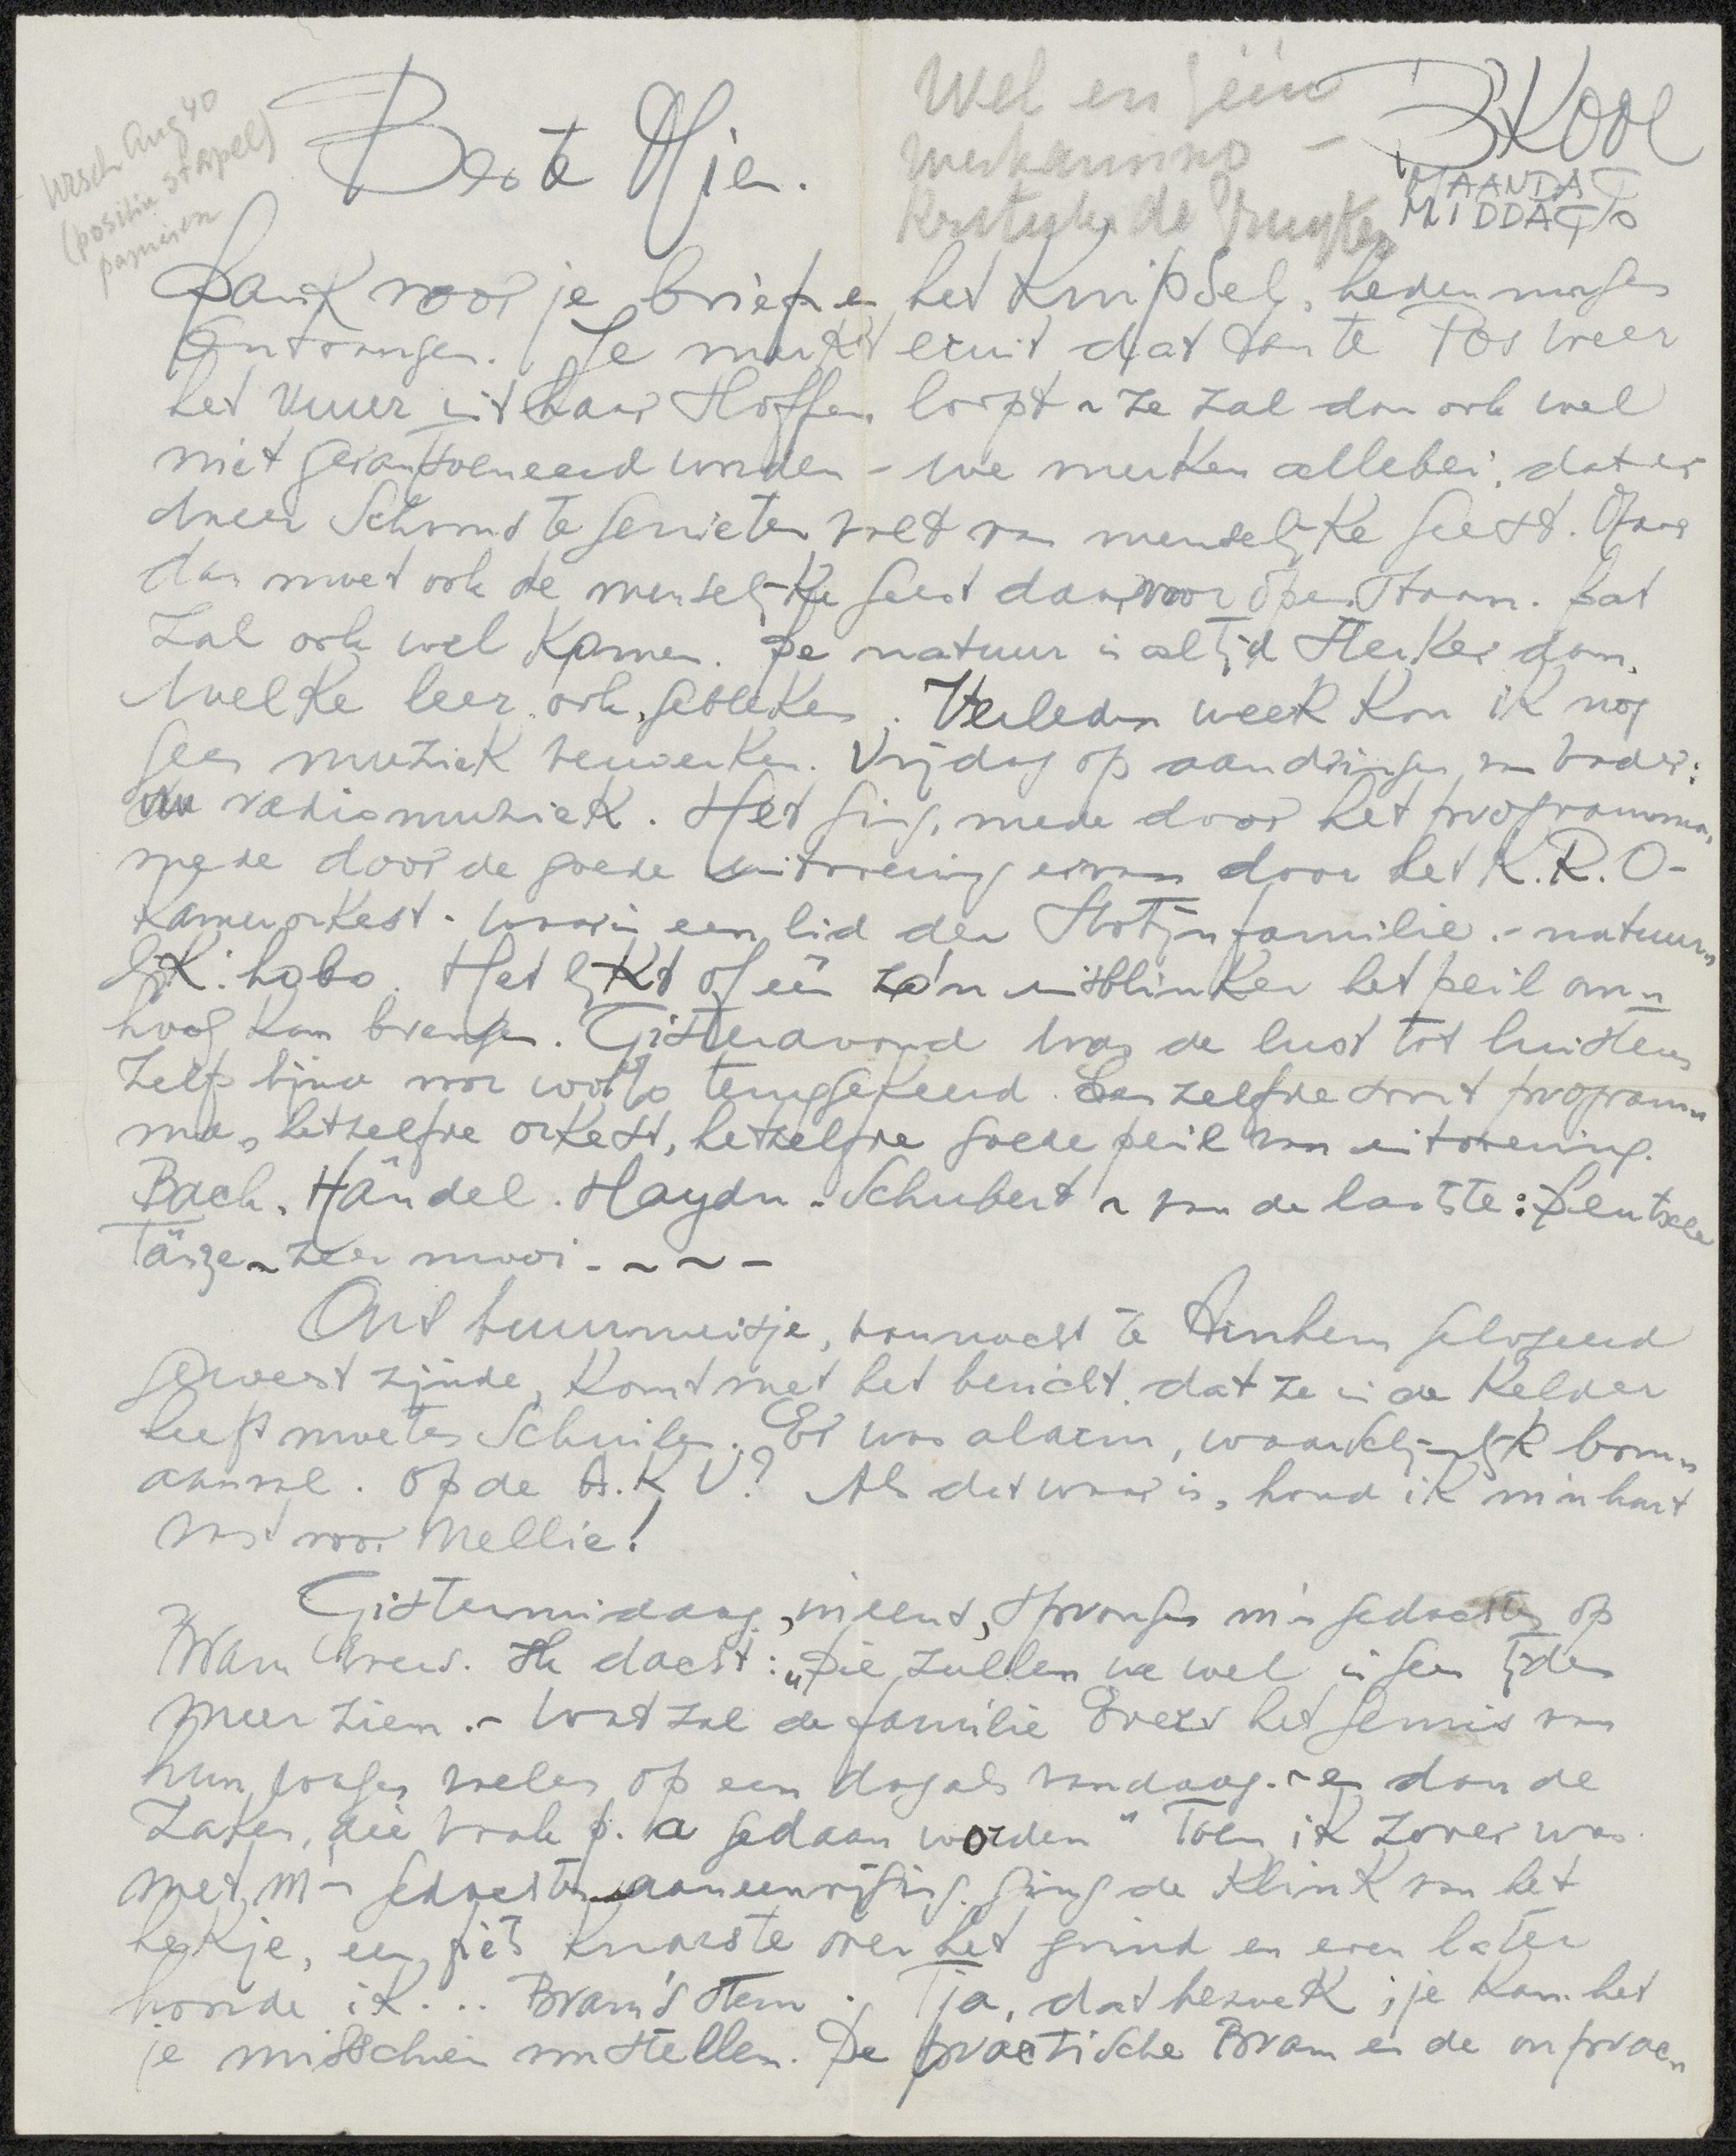 wrsch Aug 40
(positie stapel)
Beste Mien.
Wel en
BKOOL
MAANDAG
MIDDAG
Dank voor je brief en het Knipsel, heden morgen
Ontvangen. Je merkt eruit dat tante Pos weer
het vuur uit haar sloffen loopt ~ ze zal dan ook wel
niet gerantsoeneerd worden - we merken allebei, dat er
weer Schoons te genieten valt van menselijke geest. Maar
dan moet ook de menselijke geest daarvoor open staan. Dat
zal ook wel Komen. De natuur is altijd sterker dan.
Welke leer ook, gebleken. Verleden week kon ik nog
geen muziek verwerken. Vrijdag op aandringen van vader:
radiomuziek. Het ging, mede door het programma,
mede door de goede uitvoering ervan door het K.R.O-
Kamerorkest. waarin een lid der Stotijnfamilie. - natuur„
lijk: hobo. Het lijkt of één zo'n uitblinker het peil om„
hoog kan brengen. Gisteravond was de lust tot luisteren
zelfs bijna voor 100% teruggekeerd. Een zelfde soort program„
ma, hetzelfde orkest, hetzelfde goede peil van uitvoering.
Bach. Händel. Haydn. Schubert ~ van de laatste: Deutsche
Tänze ~ zeer mooi. - ~ ~ -
Ons buurmeisje, vannacht te Arnhem gelogeerd
geweest zijnde, Komt met het bericht, dat ze in de Kelder
heeft moeten Schuilen. Er was alarm, waarschijnlijk bom„
aanval. op de A.K.U? Als dat waar is, houd ik m'n hart
vast voor Nellie!
Gistermiddag, ineens, sprongen m'n gedachten op
Bram Evers. Ik dacht: „Die zullen we wel in geen tijden
meer zien. - Wat zal de familie Evers het gemis van
hun jongen voelen op een dag als vandaag. ~ en dan de
Zaken, die vaak p. a gedaan worden" Toen ik zover was
met m'n gedachtenaaneenrijging, ging de Klink van het
hekje, een fiets Knarste over het grind en even later
hoorde ik... Bram's stem. Tja, dat bezoek, je kan het
je misschien voorstellen. De practische Bram en de onprac„